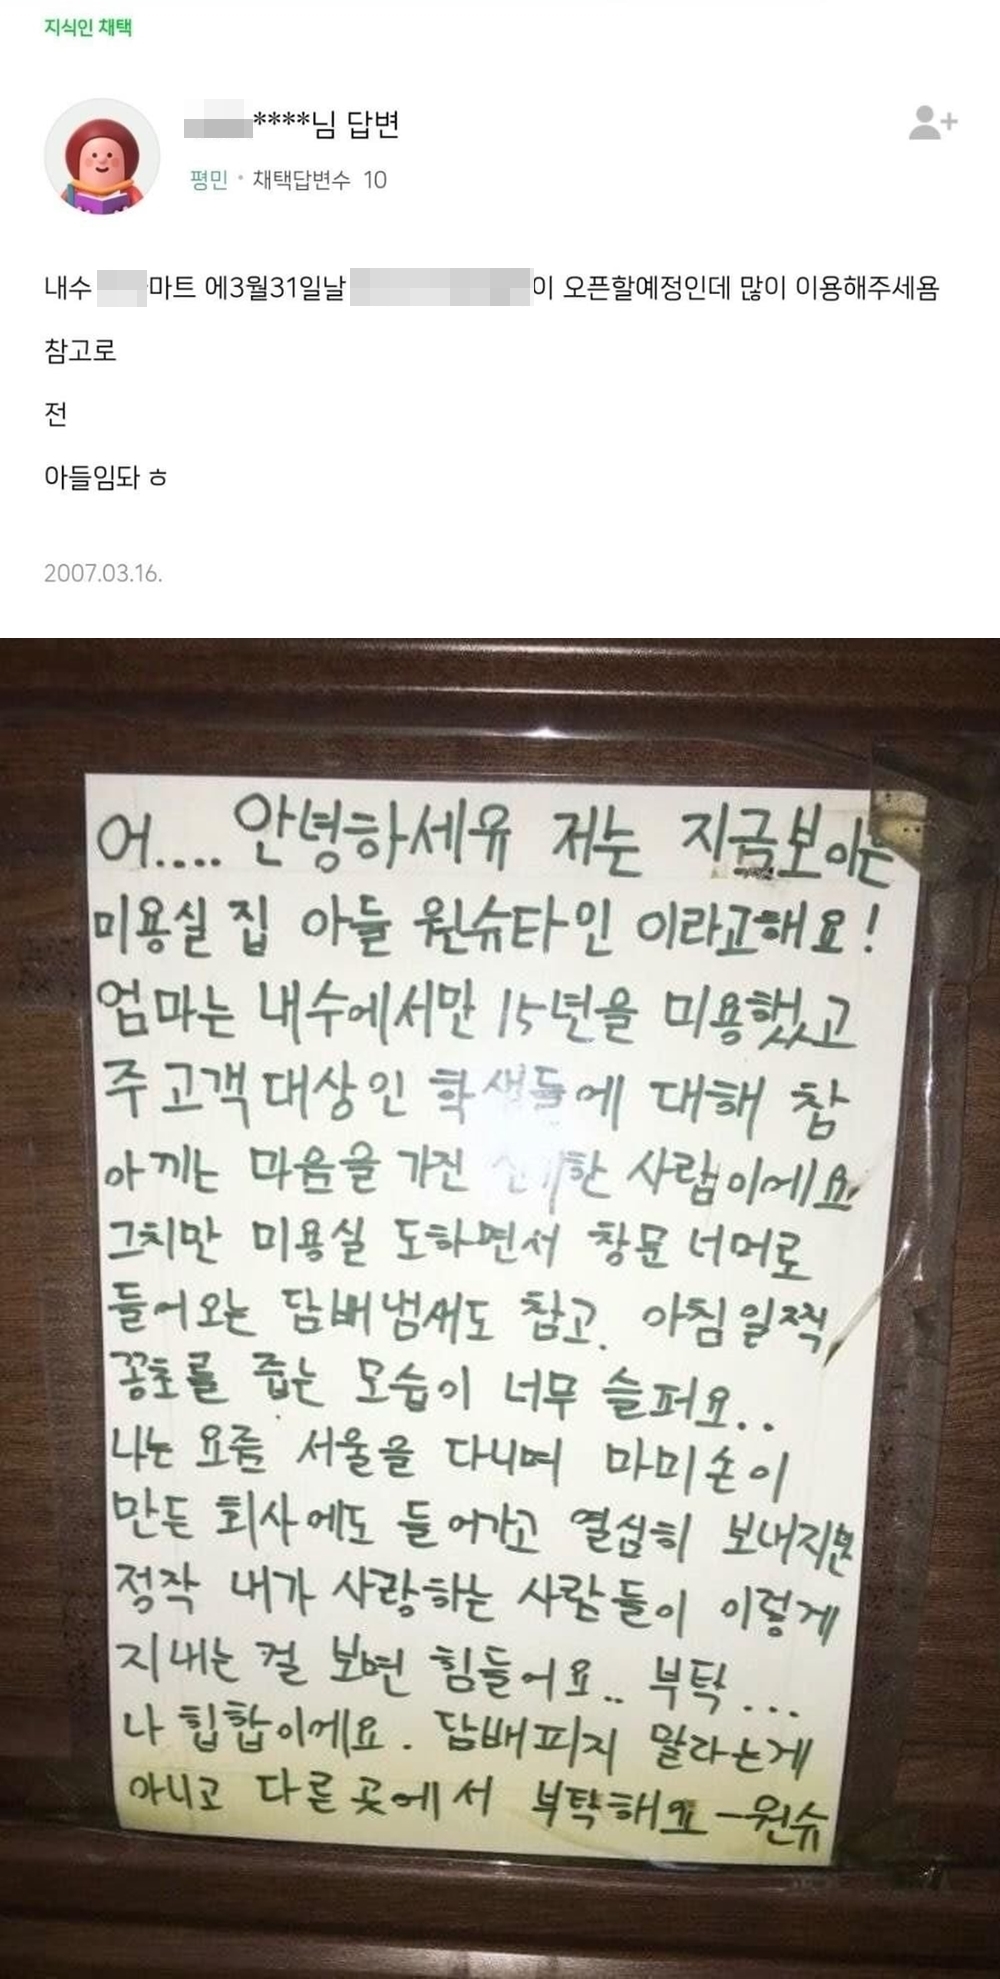 지식인 채택
****님 답변
평민 • 채택답변수 10
내수 마트 에3월31일날 이 오픈할예정인데 많이 이용해주세욤
참고로
전
아들임돠 ㅎ
2007.03.16.
어.... 안녕하세유 저는 지금보이는
미용실 집 아들 원슈타인 이라고해요!
엄마는 내수에서만 15년을 미용했고
주고객대상인 학생들에 대해 참
아끼는 마음을 가진 사람이에요
그치만 미용실 도하면서 창문 너머로
들어오는 담배냄새도 참고. 아침일찍
꽁초를 줍는 모습이 너무 슬퍼요..
나는 요즘 서울을 다니며 마미손이
만든 회사에도 들어가고 열심히 보내지만
정작 내가 사랑하는 사람들이 이렇게
지내는 걸 보면 힘들어요.. 부탁...
나 힙합이에요. 담배피지 말라는게
아니고 다른곳에서 부탁해요-원슈